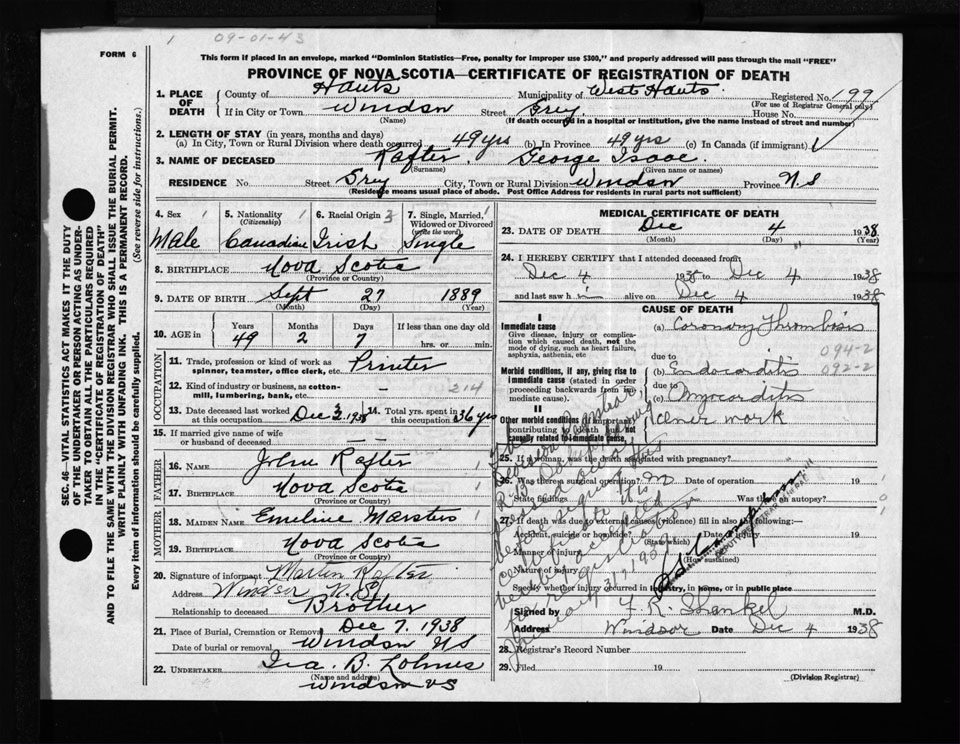 1 09-01-43
FORM 6
This form if placed in an envelope, marked "Dominion Statistics—Free, penalty for improper use $300," and properly addressed will pass through the mail "FREE"
PROVINCE OF NOVA SCOTIA—CERTIFICATE OF REGISTRATION OF DEATH
SEC. 46—VITAL STATISTICS ACT MAKES IT THE DUTY
OF THE UNDERTAKER OR PERSON ACTING AS UNDER-
TAKER TO OBTAIN ALL THE PARTICULARS REQUIRED
IN THE "CERTIFICATE OF REGISTRATION OF DEATH"
AND TO FILE THE SAME WITH THE DIVISION REGISTRAR WHO SHALL ISSUE THE BURIAL PERMIT.
WRITE PLAINLY WITH UNFADING INK. THIS IS A PERMANENT RECORD.
Every item of information should be carefully supplied. (See reverse side for instructions.)
1. PLACE OF DEATH County of Hants Municipality of West Hants Registered No. 99
(For use of Registrar General only)
If in City or Town Windsor Street Grey House No.
(Name) (If death occurred in a hospital or institution, give the name instead of street and number)
2. LENGTH OF STAY (in years, months and days)
(a) In City, Town or Rural Division where death occurred 49 yrs (b) In Province 49 yrs (c) In Canada (if immigrant)
3. NAME OF DECEASED Rafter George Isaac
(Surname) (Given name or names)
RESIDENCE No. Street Grey City, Town or Rural Division Windsor Province N S
(Residence means usual place of abode. Post Office Address for residents in rural parts not sufficient)
4. Sex 1 5. Nationality 1 6. Racial Origin 3 7. Single, Married, 1
(Citizenship) Widowed or Divorced
(write the word)
Male Canadian Irish Single
8. BIRTHPLACE Nova Scotia 1
(Province or Country)
9. DATE OF BIRTH Sept 27 1889
(Month) (Day) (Year)
10. AGE in Years Months Days If less than one day old
49 2 7 hrs. or min.
OCCUPATION
11. Trade, profession or kind of work as
spinner, teamster, office clerk, etc. Printer
12. Kind of industry or business, as cotton-
mill, lumbering, bank, etc. 214
13. Date deceased last worked at this occupation Dec 2 1938 14. Total yrs. spent in this occupation 36 yrs
15. If married give name of wife
or husband of deceased
FATHER
16. NAME John Rafter 1
17. BIRTHPLACE Nova Scotia
(Province or Country)
MOTHER
18. MAIDEN NAME Emeline Marsters 1
19. BIRTHPLACE Nova Scotia
(Province or Country)
20. Signature of informant Martin Rafter
Address Windsor N.S.
Relationship to deceased Brother
21. Place of Burial, Cremation or Removal Dec 7. 1938
Date of burial or removal Windsor NS
22. UNDERTAKER Ira. B.
(Name and address)
Windsor
MEDICAL CERTIFICATE OF DEATH
23. DATE OF DEATH Dec 4 1938
(Month) (Day) (Year)
24. I HEREBY CERTIFY that I attended deceased from
Dec 4 1938 to Dec 4 1938
and last saw h im alive on Dec 4 1938
CAUSE OF DEATH
I
Immediate cause (a) Coronary Thrombosis
Give disease, injury or complica-
tion which caused death, not the
mode of dying, such as heart failure,
asphyxia, asthenia, etc due to 094-2
Morbid conditions, if any, giving rise to (b) Endocarditis 092-2
immediate cause (stated in order due to
proceeding backwards from im-
mediate cause). (c) Myocarditis
II
Other morbid conditions (if important)
contributing to death but not
causally related to immediate cause. work
25. If a woman, was the death associated with pregnancy?
26. Was there a surgical operation? Date of operation 19
State findings Was there autopsy?
27. If death was due to external causes (violence) fill in also the following:—
Accident, suicide or homicide? Date of injury 19
(State which)
Manner of injury
(How sustained)
Nature of injury
Specify whether injury occurred in industry, in home, or in public place
DEPUTY REGISTRAR GENERAL
Signed by F. R. Shankel M.D.
Address Windsor Date Dec 4 1938
28. Registrar's Record Number
29. Filed 19
(Division Registrar)